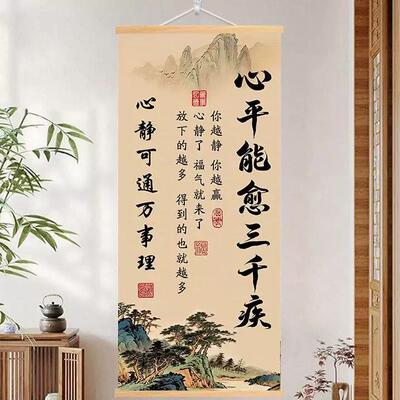 心平能愈三千疾
你越静 你越赢
心静了 福气就来了
放下的越多 得到的也就越多
心静可通万事理